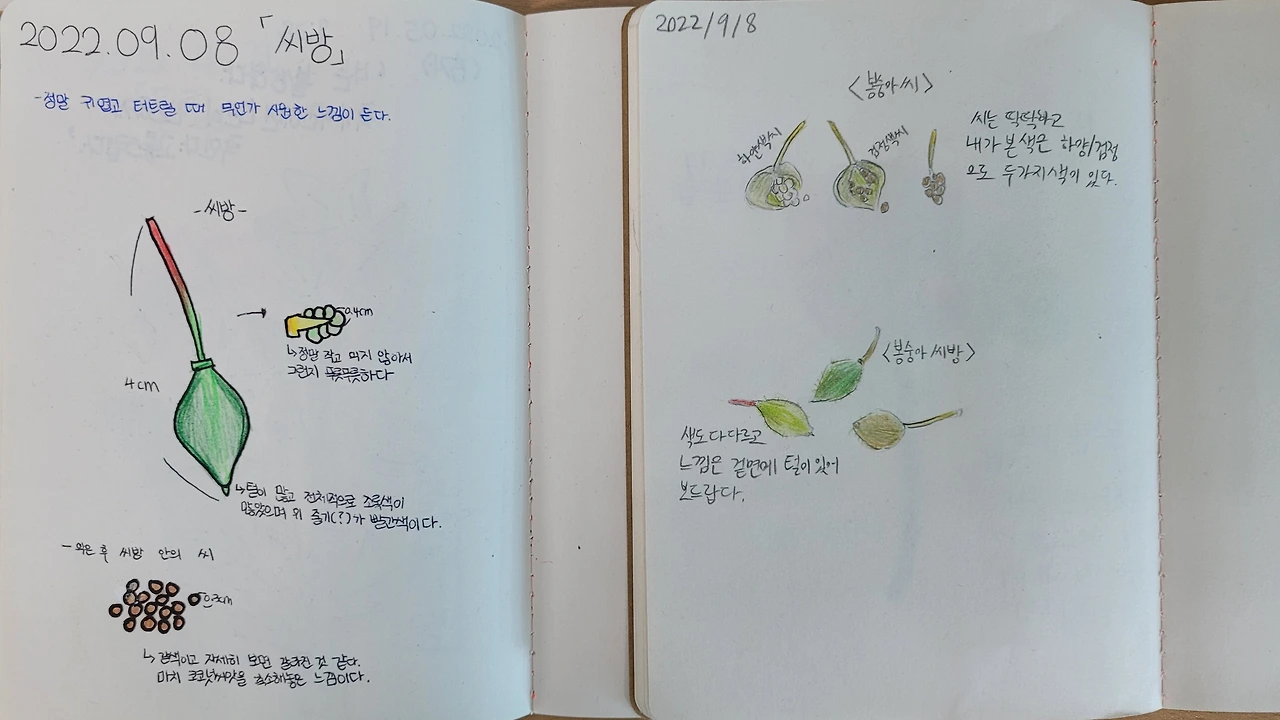 2022.09.08 「씨방」
-정말 귀엽고 터트릴 때 무언가 시원한 느낌이 든다.
-씨방-
0.4cm
↳정말 작고 익지 않아서
그런지 푸릇푸릇하다
4cm
↳털이 많고 전체적으로 초록색이
많았으며 위 줄기(?)가 빨간색이다.
-익은 후 씨방 안의 씨
0.3cm
↳갈색이고 자세히 보면 갈라진 것 같다.
마치 코코넛씨앗을 축소해놓은 느낌이다.
2022/9/8
<봉숭아 씨>
하얀색씨
검정색씨
씨는 딱딱하고
내가 본 색은 하양/검정
으로 두가지색이 있다.
<봉숭아 씨방>
색도 다 다르고
느낌은 겉면에 털이 있어
보드랍다.